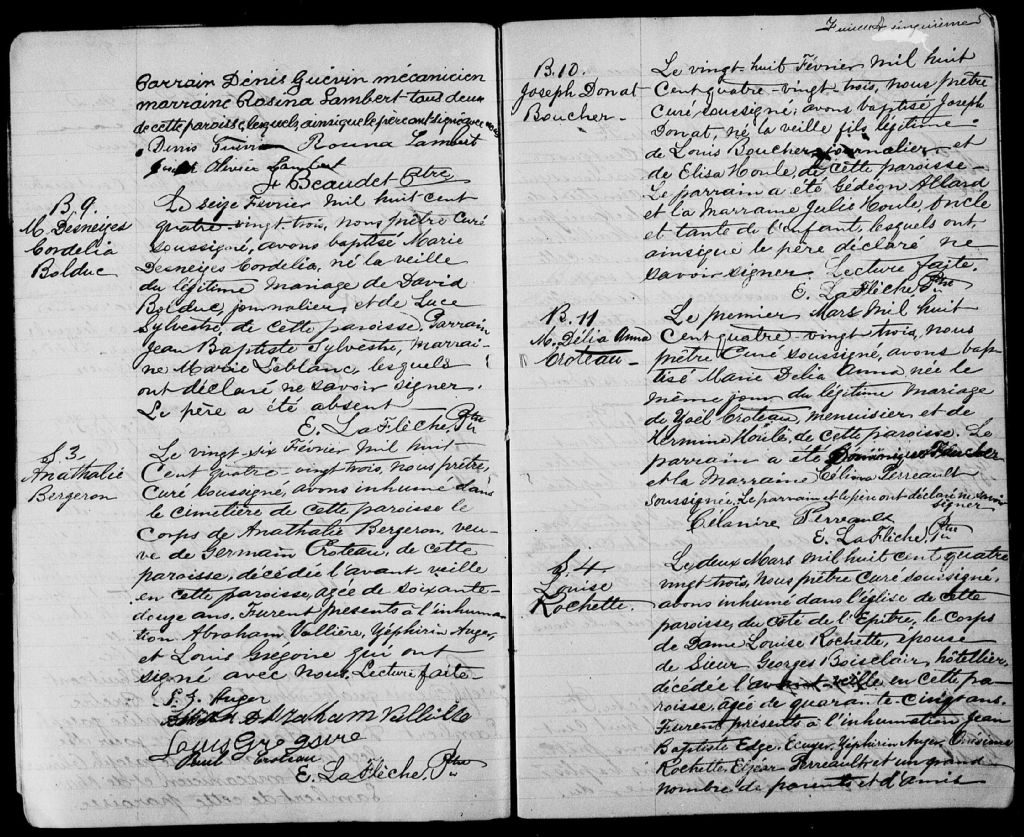 Parrain Dénis Guérin mécanicien
marraine Rosina Lambert tous deux
de cette paroisse, lesquels, ainsi que le père ont signé avec nous
Denis Guérin Rosina Lambert
Olivier Lambert
Beaudet Ptre
B. 9.
M. Desneiges
Cordelia
Bolduc
Le seize Février mil huit cent
quatre-vingt-trois, nous prêtre curé
soussigné, avons baptisé Marie
Desneiges Cordelia, né la veille
du légitime mariage de David
Bolduc, journalier, et de Luce
Sylvestre de cette paroisse, Parrain
Jean Baptiste Sylvestre, marrai-
ne Marie Leblanc, lesquels
ont déclaré ne savoir signer.
Le père a été absent
E. LaFlèche, Ptre
S. 3.
Anathalie
Bergeron
Le vingt-six Février mil huit
Cent quatre-vingt trois, nous prêtre,
Curé soussigné, avons inhumé dans
le cimetière de cette paroisse le
Corps de Anathalie Bergeron, veu-
ve de Germain Croteau, de cette
paroisse, décédée l'avant veille
en cette paroisse, agée de soixante-
douze ans. Furent présents à l'inhuma-
tion Abraham Vallière, Zéphirin Auger,
et Louis Grégoire qui ont
signé avec nous. Lecture faite-
F. Z. Auger
Abraham Vallière
Louis Grégoire
Paul Croteau
E. LaFlèche, Ptre
Feuillet cinquième
B. 10.
Joseph Donat
Boucher-
Le vingt-huit Février mil huit
Cent quatre-vingt trois, nous prêtre
Curé soussigné, avons baptisé Joseph
Donat, né la veille fils légitime
de Louis Boucher journalier et
de Elisa Houle, de cette paroisse-
Le parrain a été Gédéon Allard
et la Marraine Julie Houle, oncle
et tante de l'enfant, lesquels ont,
ainsi que le père déclaré ne
savoir signer Lecture faite.
E. LaFlèche Ptre
B. 11
M. Délia Anna
Croteau-
Le premier Mars mil huit
Cent quatre-vingt trois, nous
prêtre Curé soussigné, avons bap-
tisé Marie Delia Anna née le
même jour du légitime mariage
de Yoël Croteau, menuisier, et de
Hermine Houle, de cette paroisse. Le
parrain a été Dominique Foucher
et la Marraine Perreault
soussignée. Le parrain et le père ont déclaré ne savoir
signer
Célanire Perreault
E. LaFlèche, Ptre
S. 4.
Louise
Rochette.
Le deux Mars mil huit cent quatre
vingt trois, nous prêtre curé soussigné,
avons inhumé dans l'église de cette
paroisse, du côté de l'Epitre, le corps
de Dame Louise Rochette, épouse
de Sieur Georges Boisclair, hôtellier,
décédée l'avant veille, en cette pa-
roisse, agée de quarante-cinq ans.
Furent présents à l'inhumation Jean
Baptiste Edge, Ecuyer, Zéphirin Auger, Onésime
Rochette, Elzéar Perreault, et un grand
nombre de parents et d'amis